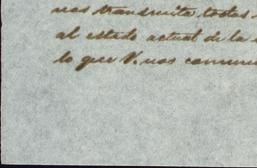 nos transmita todas
al estado actual de la
lo que V. nos comuni